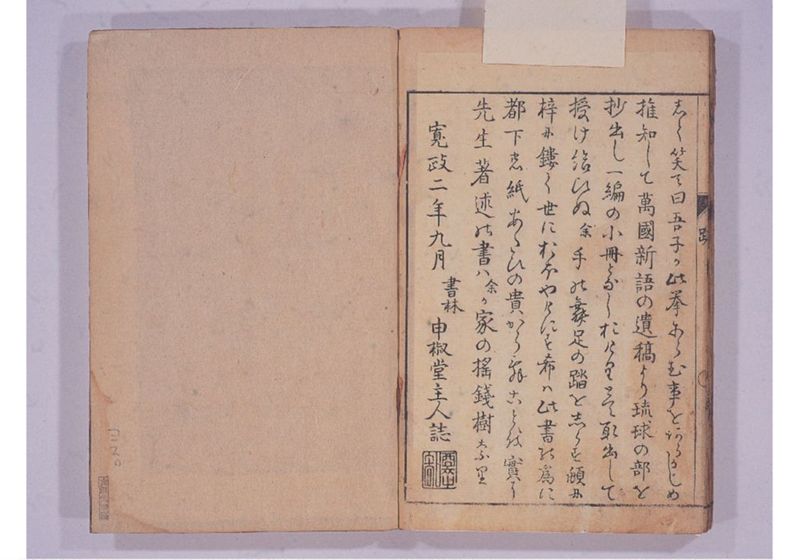 しく笑て曰吾子か此挙あらむ事をあらかしめ
推知して萬國新語の遺稿より琉球の部を
抄出し一編の小冊となしおけりとて取出して
授け給ひぬ余手の舞足の踏をしらす頓に
梓に鏤く世におほやけにす希ハ此書の為に
都下紙あたひの貴からんことを實に
先生著述の書ハ余か家の揺錢樹なり
寛政二年九月
書林 申椒堂主人誌